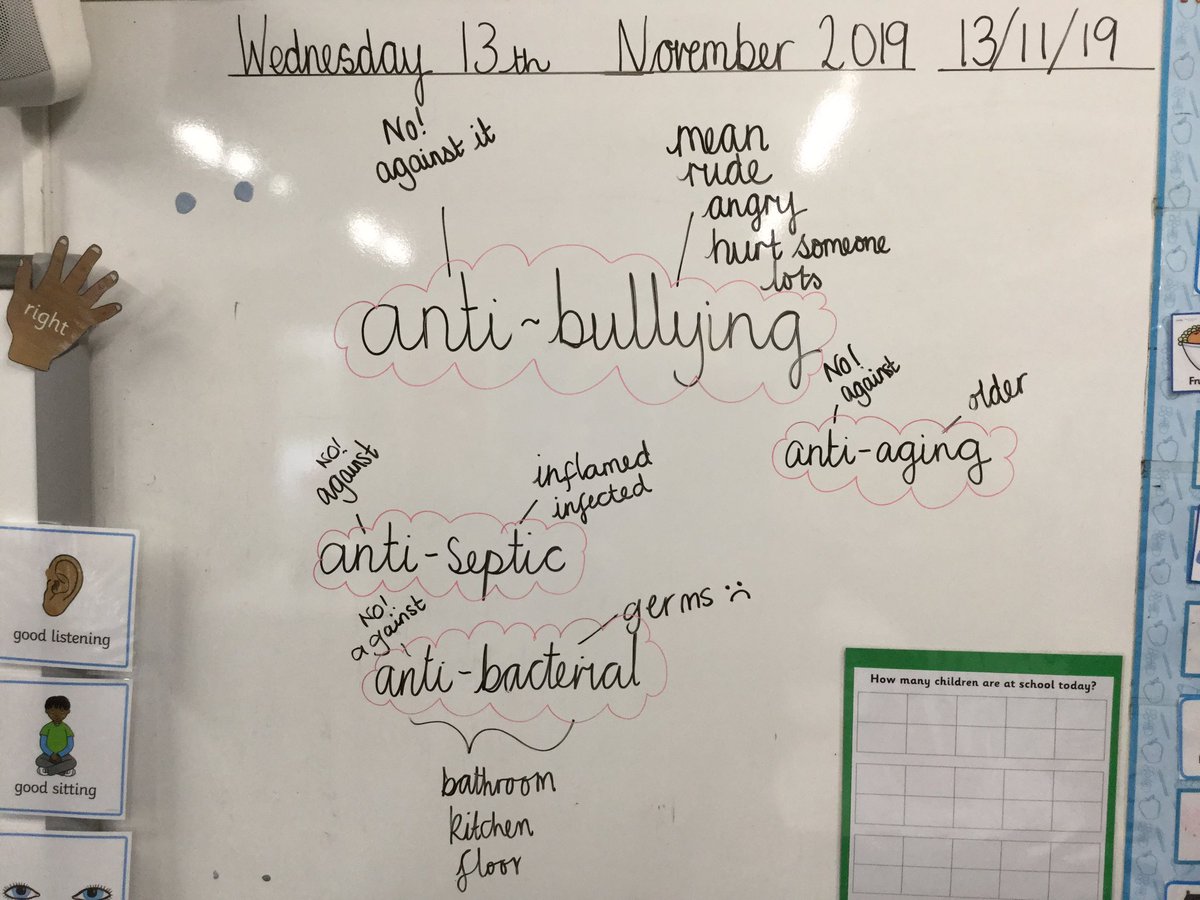 Wednesday 13th November 2019 13/11/19
No!
against it
mean
rude
angry
hurt someone
lots
anti-bullying
right
No!
against
older
anti-aging
No!
against
inflamed
infected
anti-septic
No!
against
germs :(
anti-bacterial
bathroom
kitchen
floor
good listening
good sitting
How many children are at school today?